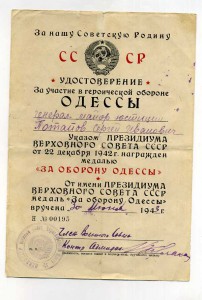 За нашу Советскую Родину
СС СР
УДОСТОВЕРЕНИЕ
За участие в героической обороне
ОДЕССЫ
генерал майор юстиции
Сергей Иванович
Указом ПРЕЗИДИУМА
ВЕРХОВНОГО СОВЕТА СССР
от 22 декабря 1942 г. награжден
медалью
«ЗА ОБОРОНУ ОДЕССЫ»
От имени ПРЕЗИДИУМА
ВЕРХОВНОГО СОВЕТА СССР
медаль «За оборону Одессы»
вручена 30 194 г.
Н № 00195